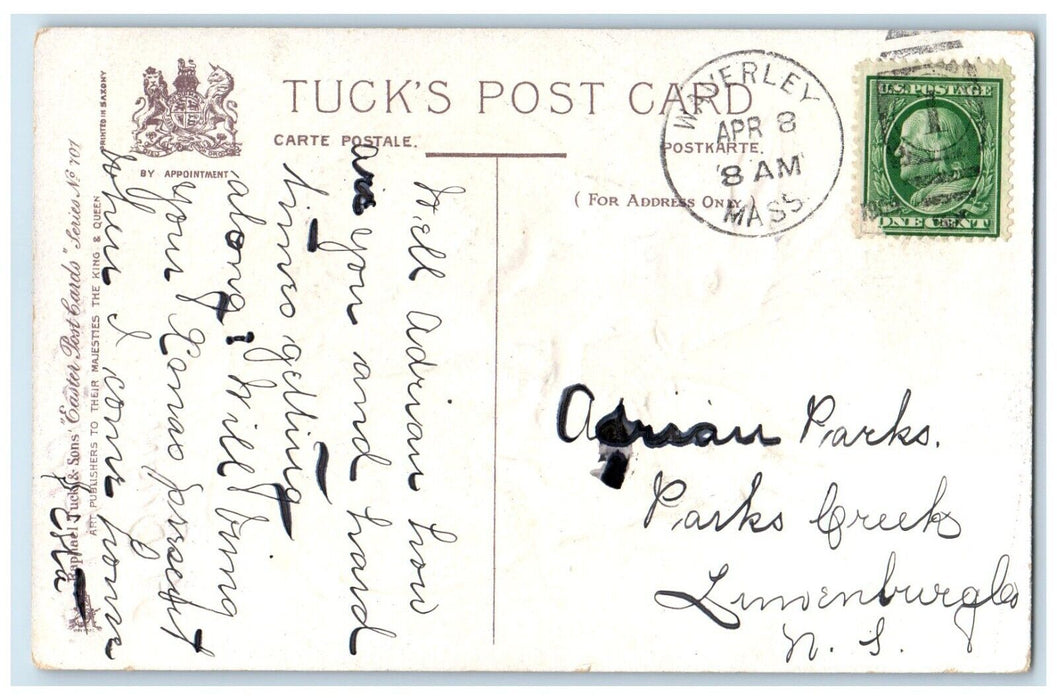 TUCK'S POST CARD
CARTE POSTALE.
POSTKARTE.
( FOR ADDRESS ONLY )
BY APPOINTMENT
PRINTED IN SAXONY
Raphael Tuck & Sons' "Easter Post Cards" Series No 707
ART PUBLISHERS TO THEIR MAJESTIES THE KING & QUEEN
WAVERLEY
APR 8
8 AM
MASS.
U.S. POSTAGE
1
ONE CENT
Well Adrian how
are you and hard
times getting
along? Will bring
you Xmas present
when I come home
Adrian Parks.
Parks Creek
Lunenburg Co
N. S.